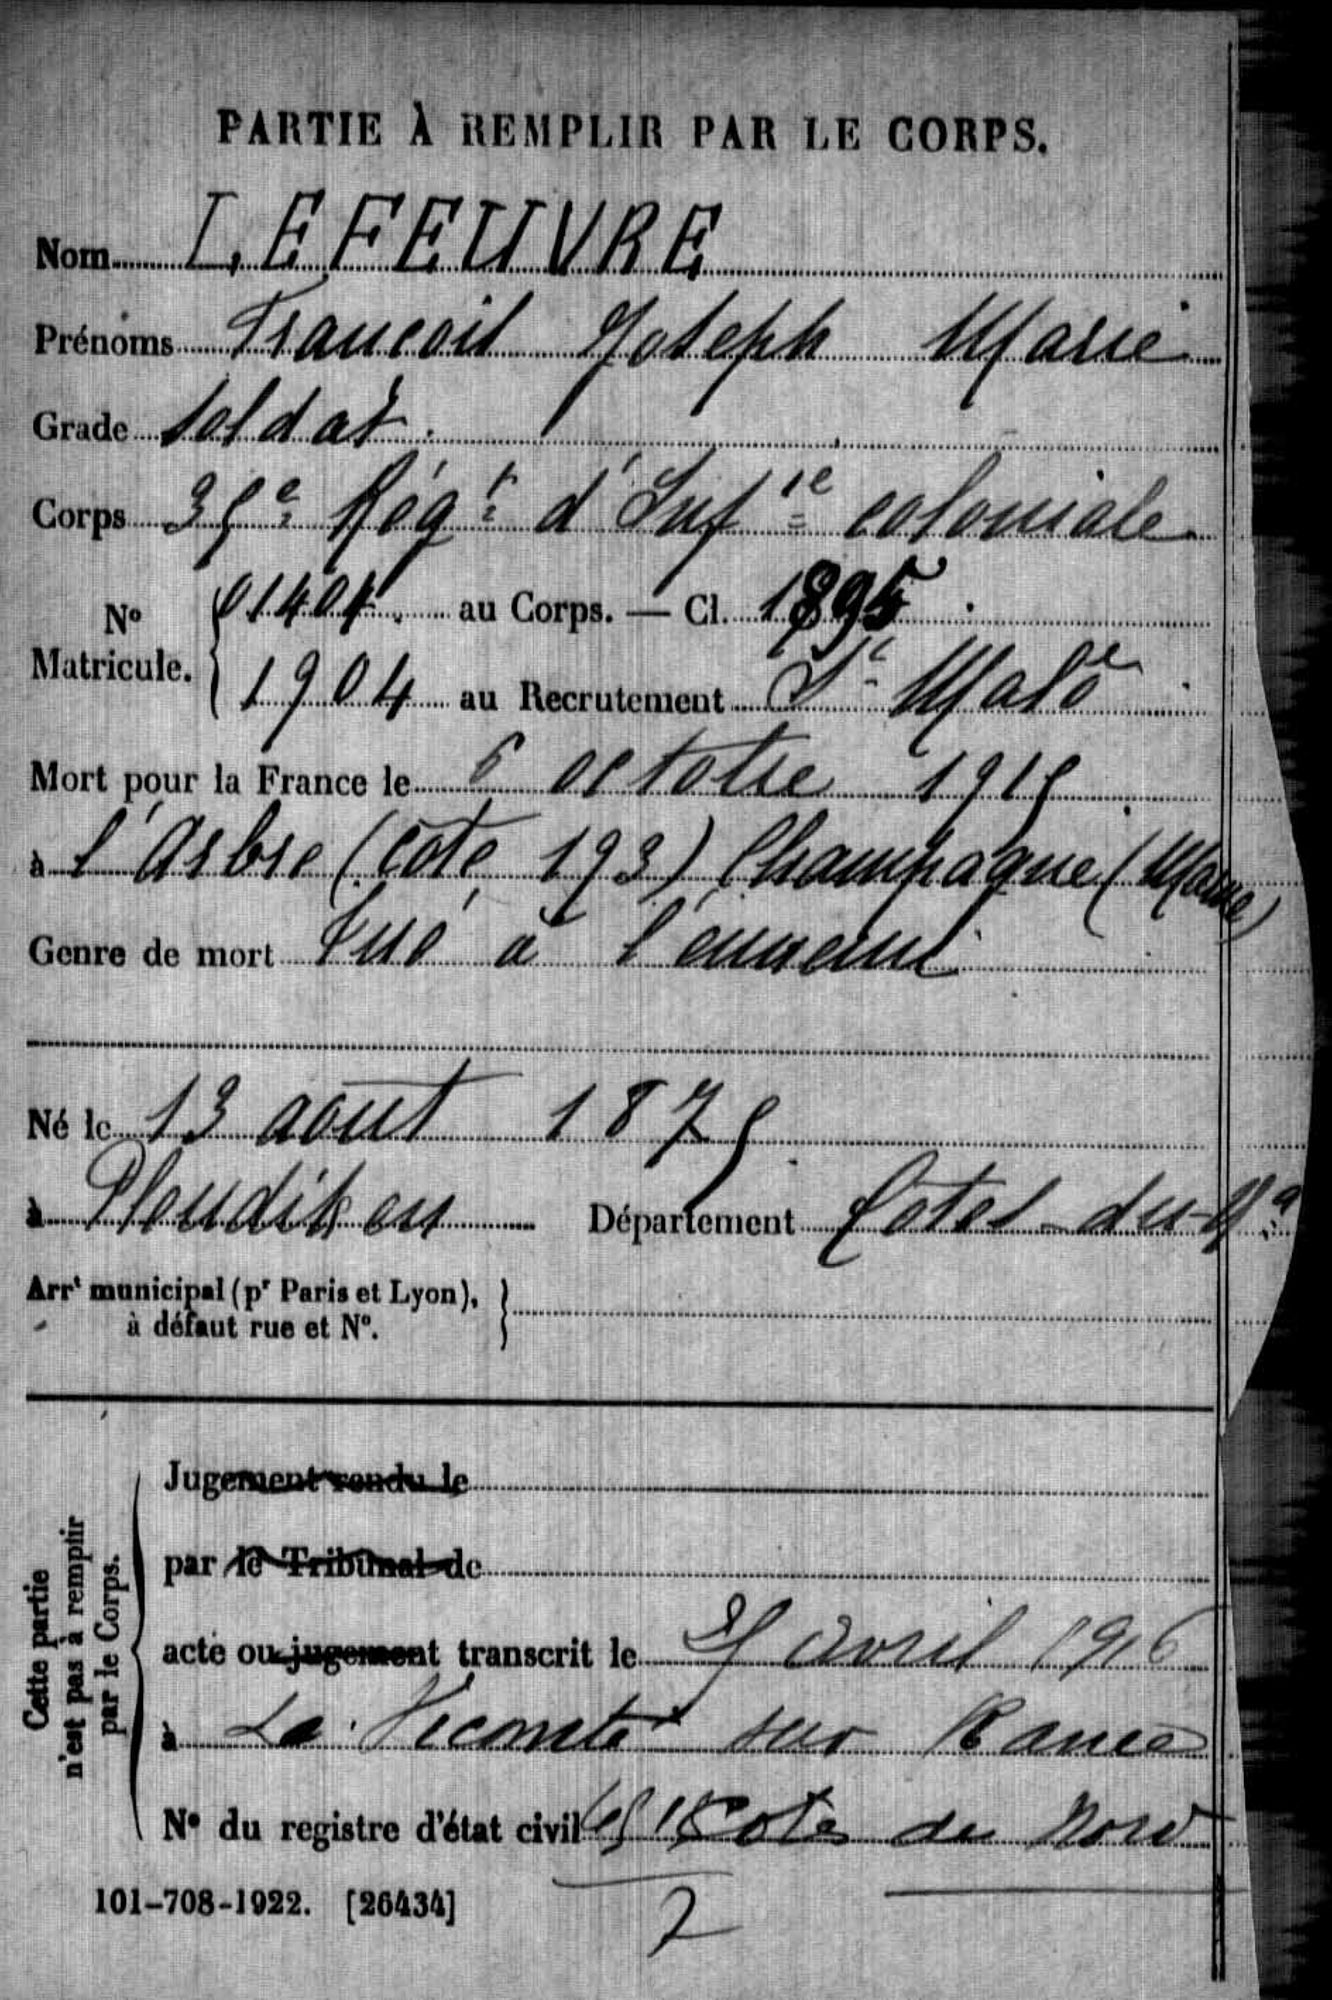 PARTIE À REMPLIR PAR LE CORPS.
Nom LEFEUVRE
Prénoms François Joseph Marie
Grade soldat.
Corps 35e Régt d'Infie coloniale
No 01404. au Corps. — Cl. 1895
Matricule. 1904 au Recrutement St Malo
Mort pour la France le 6 octobre 1915
à l'Arbre (côte 193) Champagne (Marne)
Genre de mort Tué à l'ennemi
Né le 13 août 1875
à Pleudihen Département Côtes-du-Nd
Arrt municipal (pr Paris et Lyon),
à défaut rue et No.
Cette partie
n'est pas à remplir
par le Corps.
Jugement rendu le
par le Tribunal de
acte ou jugement transcrit le avril 1916
à La Vicomté sur Rance
No du registre d'état civil Côtes du Nord
101-708-1922. [26434]